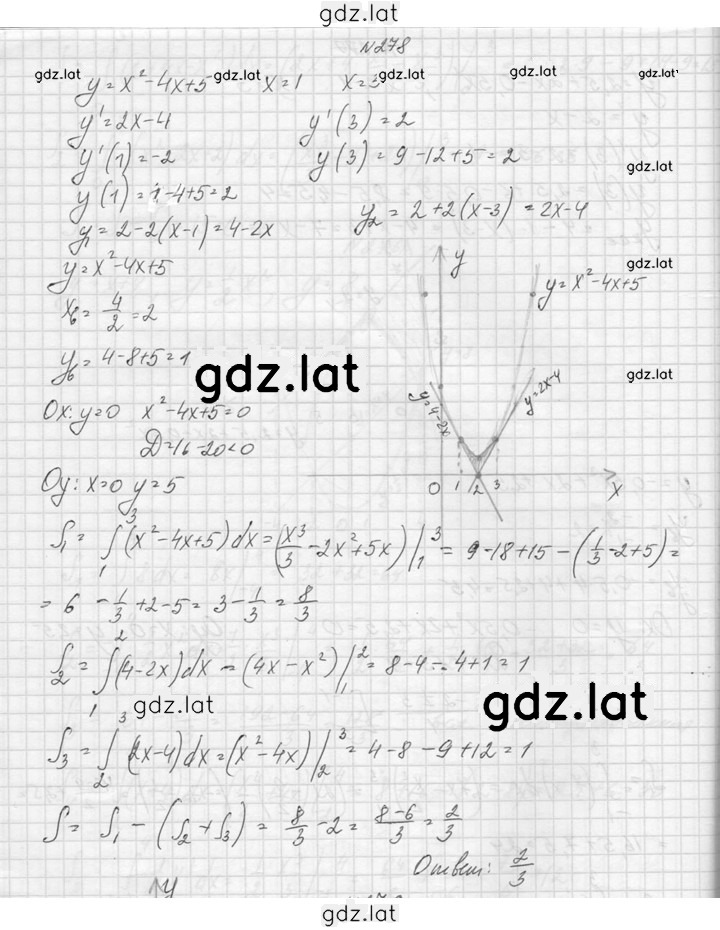 gdz.lat
N278
gdz.lat gdz.lat gdz.lat gdz.lat
y = x² - 4x + 5   x = 1   x = 3
y' = 2x - 4   y'(3) = 2
y'(1) = -2   y(3) = 9 - 12 + 5 = 2
gdz.lat
y(1) = 1 - 4 + 5 = 2
y₂ = 2 + 2(x-3) = 2x - 4
y₁ = 2 - 2(x-1) = 4 - 2x
y = x² - 4x + 5
gdz.lat
y
y = x² - 4x + 5
xв = 4/2 = 2
yв = 4 - 8 + 5 = 1
gdz.lat
gdz.lat
y=4-2x
y=2x-4
Ox: y=0   x² - 4x + 5 = 0
D = 16 - 20 < 0
Oy: x=0 y=5
0 1 2 3 x
S₁ = ∫₁³ (x² - 4x + 5) dx = (x³/3 - 2x² + 5x) |₁³ = 9 - 18 + 15 - (1/3 - 2 + 5) =
= 6 - 1/3 + 2 - 5 = 3 - 1/3 = 8/3
S₂ = ∫₁² (4-2x) dx = (4x - x²) |₁² = 8 - 4 - 4 + 1 = 1
gdz.lat
gdz.lat
S₃ = ∫₂³ (2x-4) dx = (x² - 4x) |₂³ = 4 - 8 - 9 + 12 = 1
S = S₁ - (S₂ + S₃) = 8/3 - 2 = (8-6)/3 = 2/3
Ответ: 2/3
y
gdz.lat